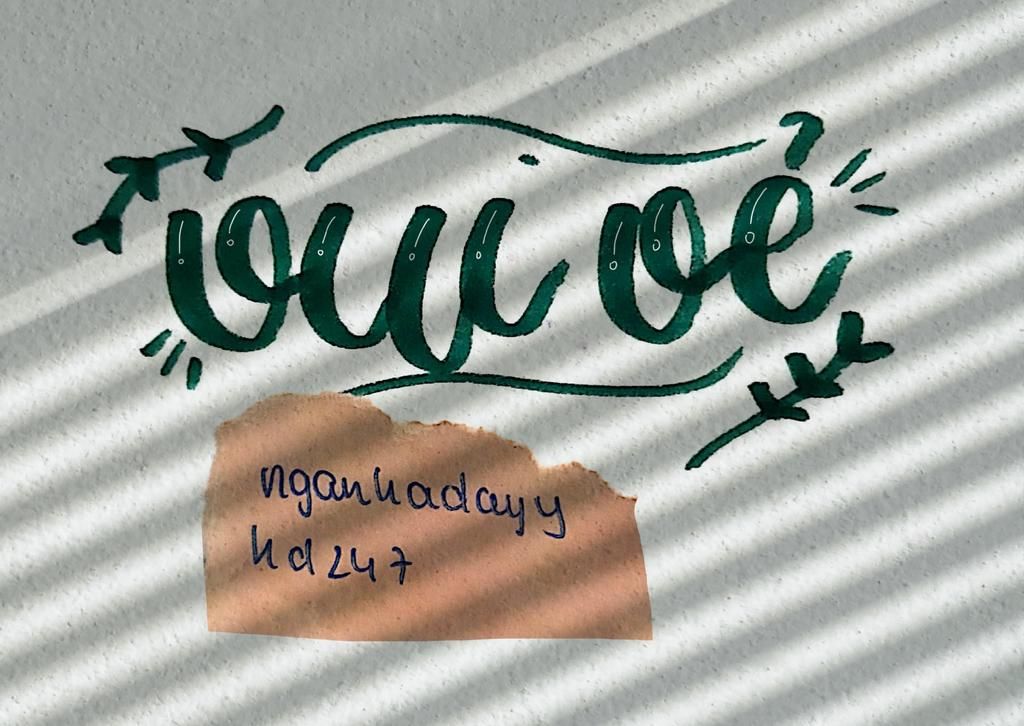 vui vẻ
nganhadayy
hd247